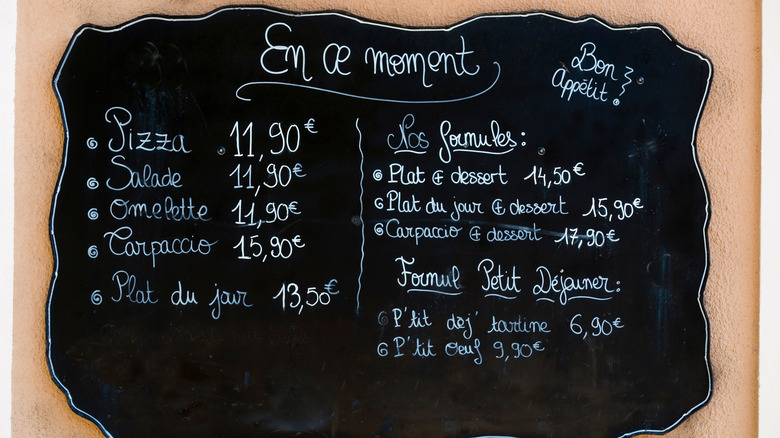 En ce moment
Bon
Appétit !
Pizza 11,90€
Salade 11,90€
Omelette 11,90€
Carpaccio 15,90€
Plat du jour 13,50€
Nos formules :
Plat & dessert 14,50€
Plat du jour & dessert 15,90€
Carpaccio & dessert 17,90€
Formul Petit Déjeuner :
P'tit dej' tartine 6,90€
P'tit oeuf 9,90€